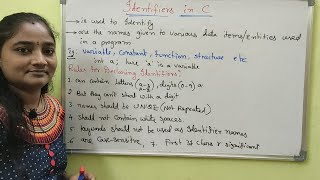 Identifiers in C
→ is used to Identify
→ are the names given to various data items/entities used
in a program
Eg: variable, constant, function, structure etc
int a; here 'a' is a variable
Rules for Declaring Identifiers:
1 can contain letters (a-z), digits (0-9)
2 But they can't start with a digit
3 names should be UNIQUE (Not Repeated)
4 should not contain white spaces.
5 Keywords should not be used as Identifier names
6 are Case-Sensitive, 7. First 31 chars r significant